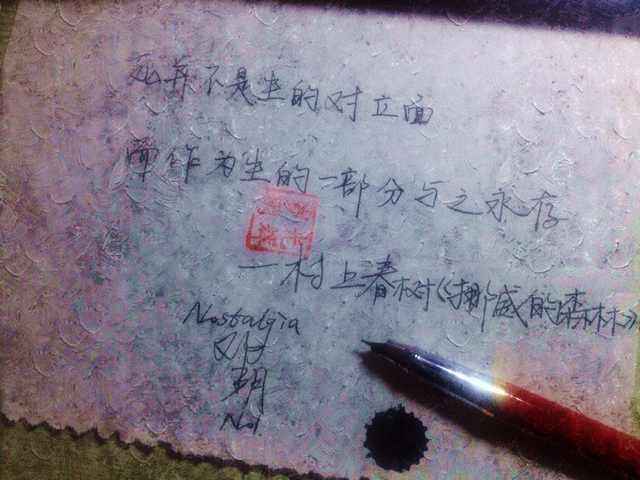 死并不是生的对立面
而作为生的一部分与之永存
—村上春树《挪威的森林》
Nostalgia
No1